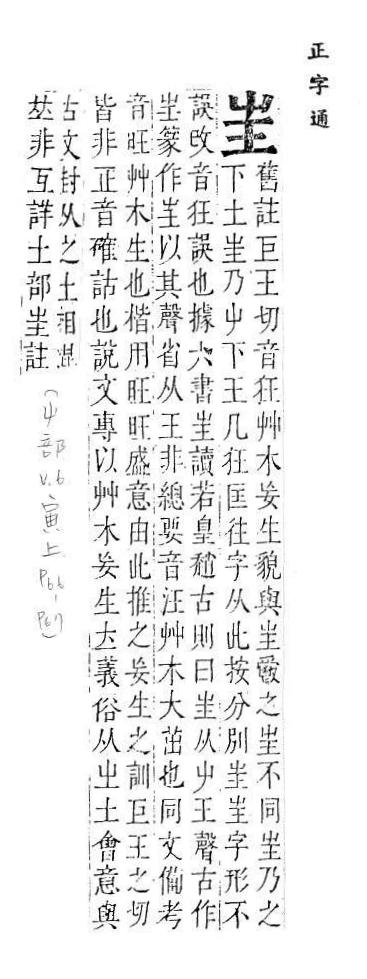 正字通
㞷
舊註巨王切音狂艸木妄生貌與㞷之㞷不同㞷乃之
下土㞷乃屮下王凡狂匡往字从此按分別㞷㞷字形不
誤改音狂誤也據六書㞷讀若皇稽古則曰㞷从屮王聲古作
㞷篆作㞷以其聲省从王非總要音汪艸木大茁也同文備考
音旺艸木生也楷用旺旺盛意由此推之妄生之訓巨王之切
皆非正音確詁也說文專以艸木妄生立義俗从㞢土會意與
古文封从之土相混
𠀤非互詳土部㞷註
(屮部 v.6.寅上 P66-P67)